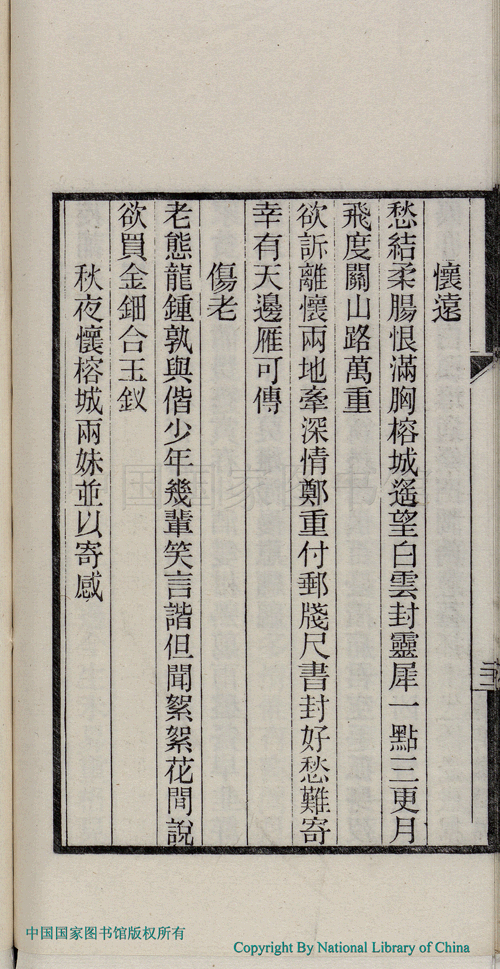 懷遠
愁結柔腸恨滿胸榕城遙望白雲封靈犀一點三更月
飛度關山路萬重
欲訴離懷兩地牽深情鄭重付郵牋尺書封好愁難寄
幸有天邊雁可傳
傷老
老態龍鍾孰與偕少年幾輩笑言諧但聞絮絮花間說
欲買金鈿合玉釵
秋夜懷榕城兩妹並以寄感
中国国家图书馆版权所有
Copyright By National Library of China